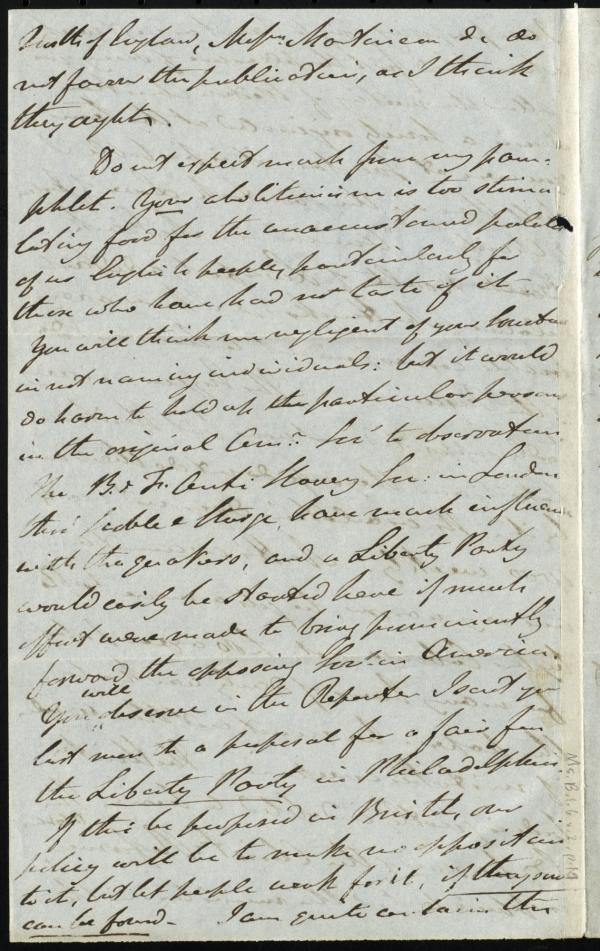 North of England, Messrs. Martineau &c do
not favor the publication, as I think
they ought.
Do not expect much from my pam-
phlet. Your abolitionism is too stimu
lating food for the unaccustomed palate
of us English people, particularly for
those who have had no taste of it.
You will think me negligent of your
in not naming individuals: but it would
do harm to hold up the particular persons
in the original Amn. Soc. to observation.
The B. & F. Anti Slavery Soc: in London
thro' Scoble & Sturge, have much influence
with the quakers, and a Liberty Party
would easily be started here if much
effort were made to bring prominently
forward the opposing Soc: in America.
You will observe in the Reporter I sent you
last month a proposal for a fair for
the Liberty Party in Philadelphia.
If this be proposed in Bristol, our
policy will be to make no opposition
to it, but let people work for it, if they
can be found. I am quite certain this
Ms. B.1.6 v.2